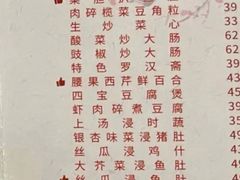 肉碎榄菜豆角粒 39
生炒菜心 39
酸菜炒大肠 62
豉椒炒大肠 62
特色罗汉斋 43
腰果西芹鲜百合
四宝豆腐煲
虾肉煮豆腐
上汤浸时蔬
银杏味菜浸猪肚
丝瓜浸鸡什
大芥菜浸鱼肚
丝瓜浸鱼